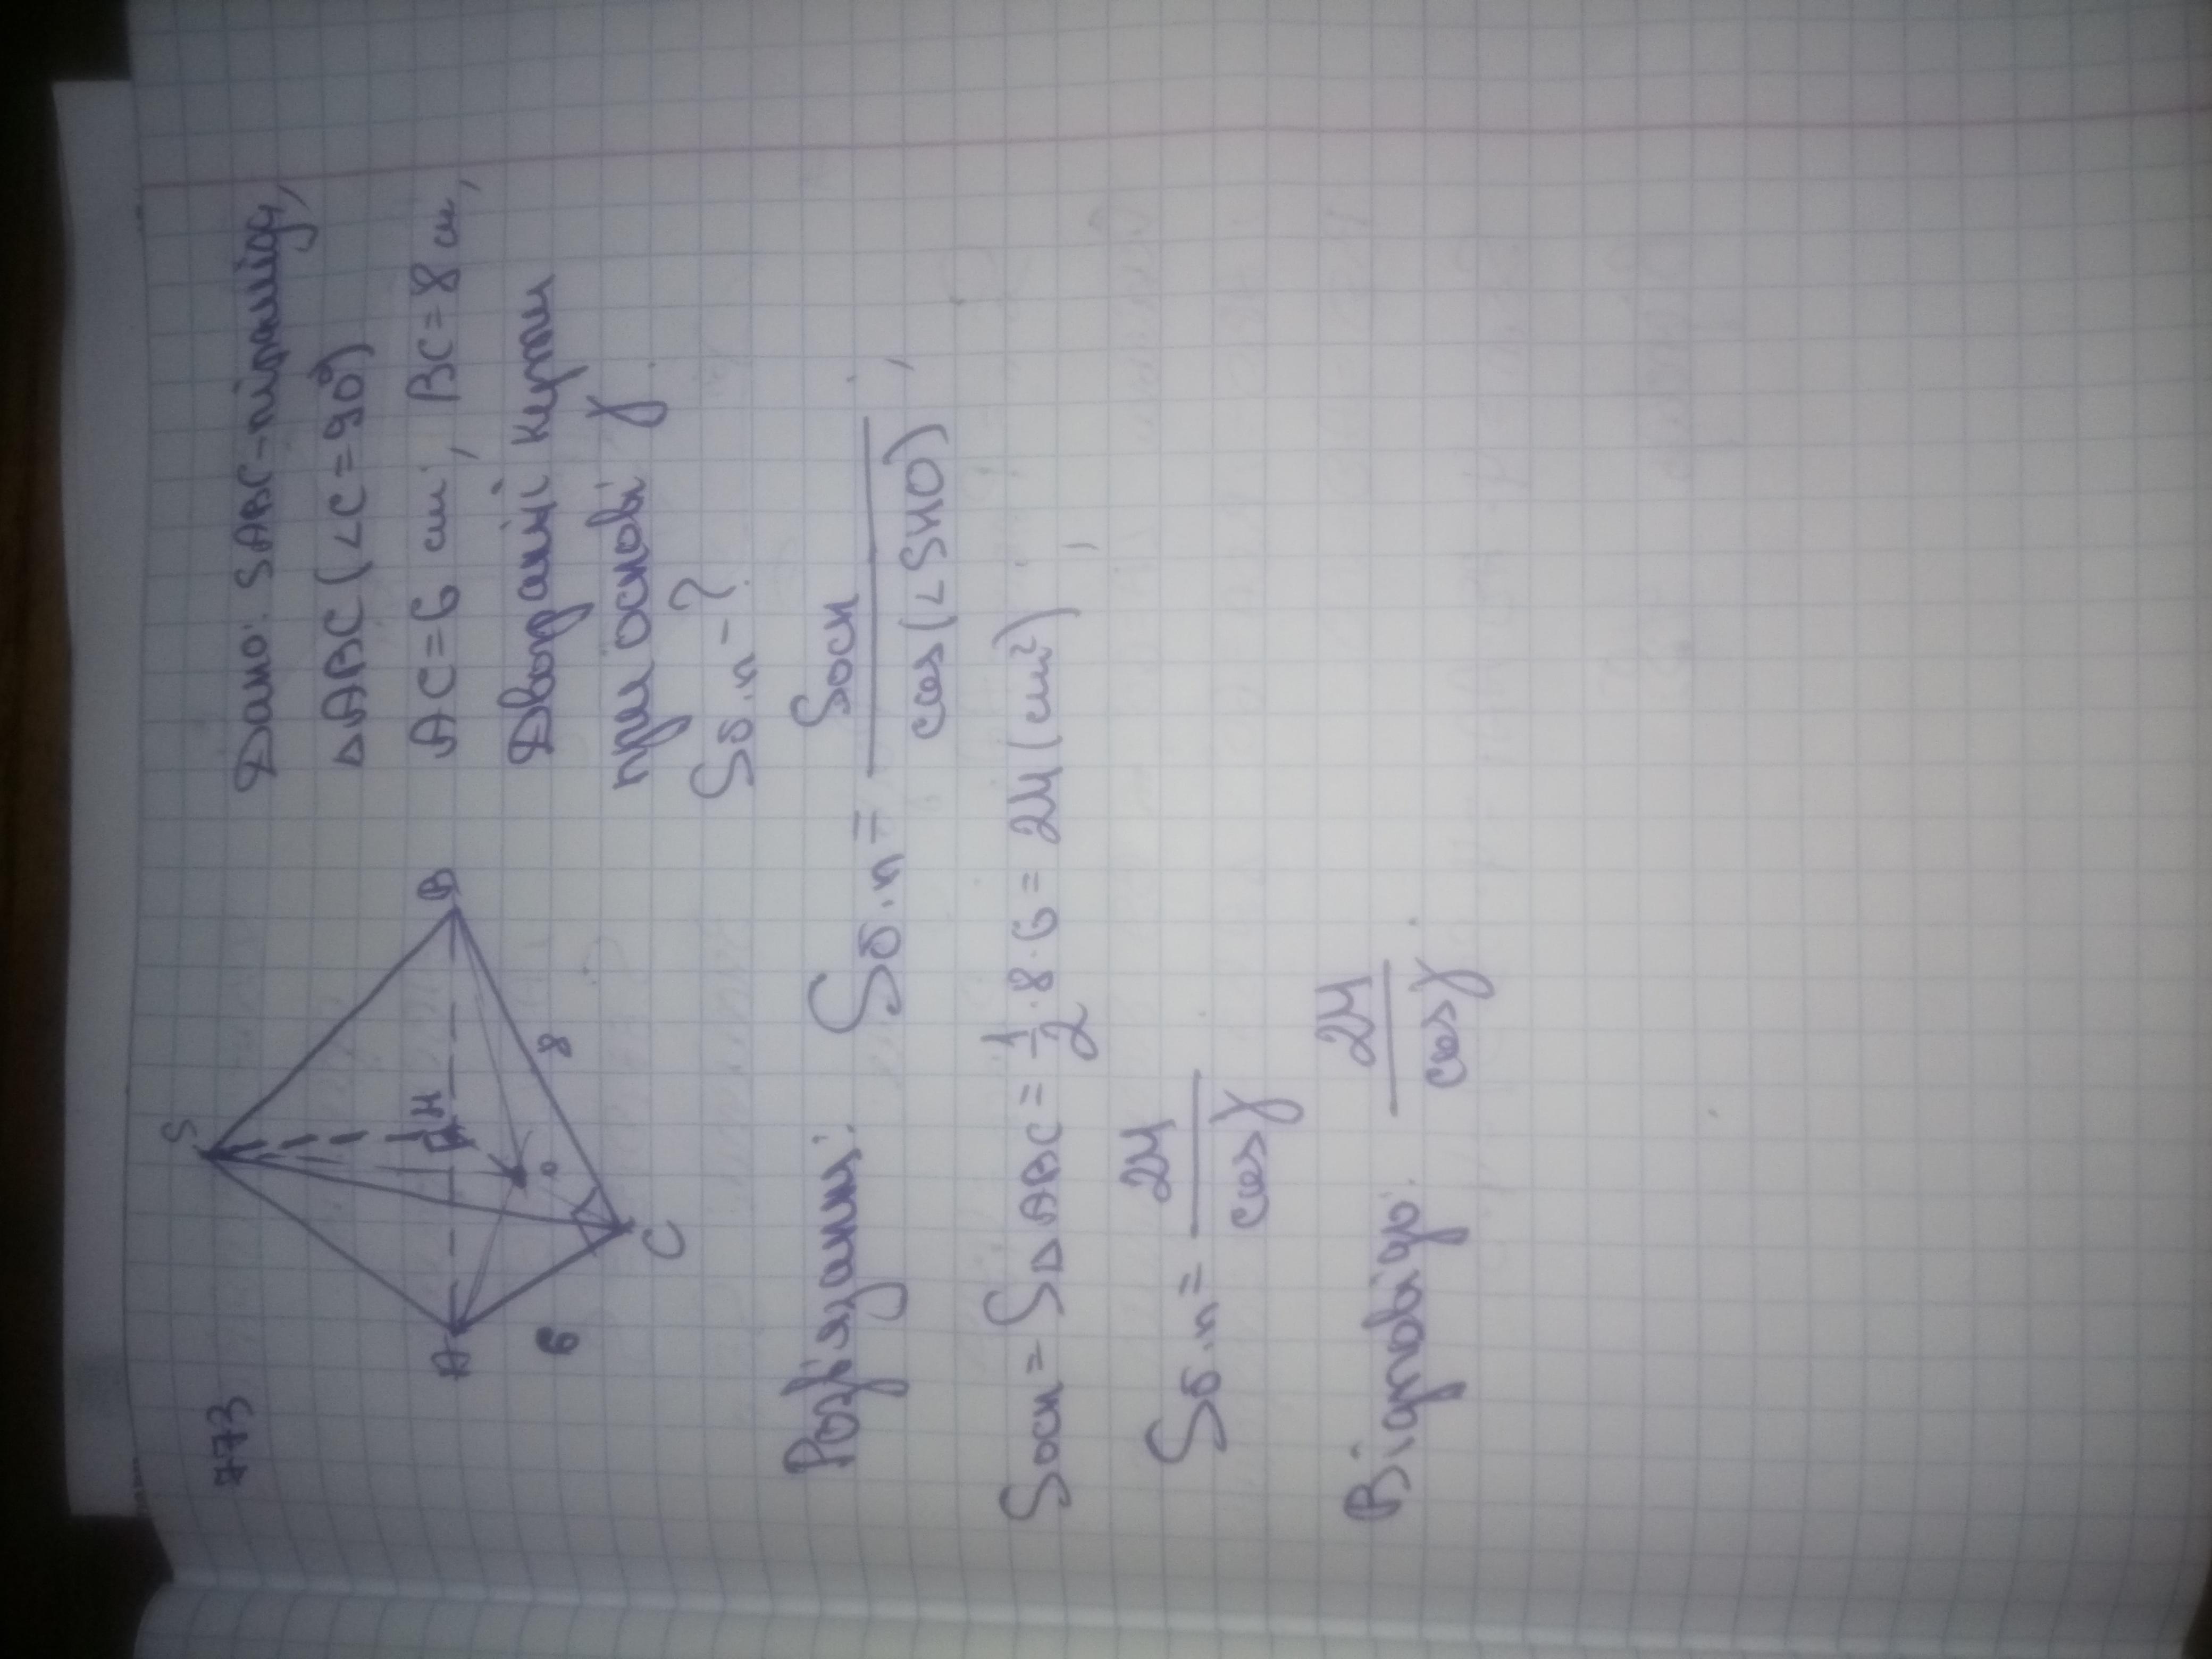 773
S
A
H
B
O
6
8
C
Дано: SABC-піраміда,
△ABC (∠C=90°)
AC=6 см, BC=8 см,
Двогранні кути
при основі γ
Sб.п-?
Розв'язання: Sб.п = Sосн / cos(∠SHO),
Sосн = S△ABC = 1/2 · 8 · 6 = 24 (см²),
Sб.п = 24 / cosγ
Відповідь: 24 / cosγ.